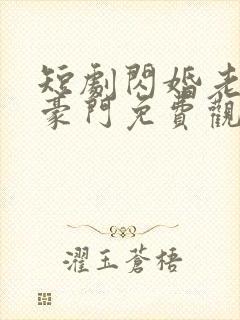 短劇閃婚老
豪門免費觀
濯玉蒼梧